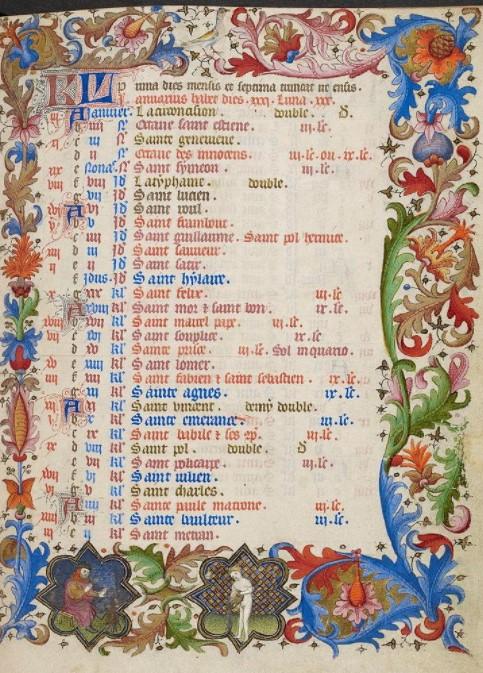 KL Prima dies mensis et septima truncat ut ensis.
Januarius habet dies .xxxj. Luna .xxx.
A Januier. La circoncision. double.
b iiij N Octaue saint estiene. iij. lc.
c iij N Sainte geneuieue.
d ij N Octaue des innocens. iij. lc. ou. ix. lc.
e Nonas. N Saint symeon. iij. lc.
f viij Jd La typhaine. double.
g vij Jd Saint lucien.
A vj Jd Saint
b v Jd Saint
c iiij Jd Saint guillaume. Saint pol hermite.
d iij Jd Saint sauueur.
e ij Jd Saint satir.
f Jdus. Jd Saint hylaire.
g xix kl Saint felix. iij. lc.
A xviij kl Saint mor et saint bon. ix. lc.
b xvij kl Saint marcel pape. iij. lc.
c xvj kl Saint souplice. ix. lc.
d xv kl Sainte prisce. iij. lc. Sol in aquario.
e xiiij kl Saint lomer.
f xiij kl Saint fabien et saint sebastien. ix. lc.
g xij kl Sainte agnes. ix. lc.
A xj kl Saint vincent. demy double.
b x kl Sainte emerance. iij. lc.
c ix kl Saint babile et ses iij. lc.
d viij kl Saint pol. double.
e vij kl Saint policarpe. iij. lc.
f vj kl Saint iulien.
g v kl Saint charles.
A iiij kl Sainte paule matrone. iij. lc.
b iij kl Sainte baulteur. iij. lc.
c ij kl Saint metran.